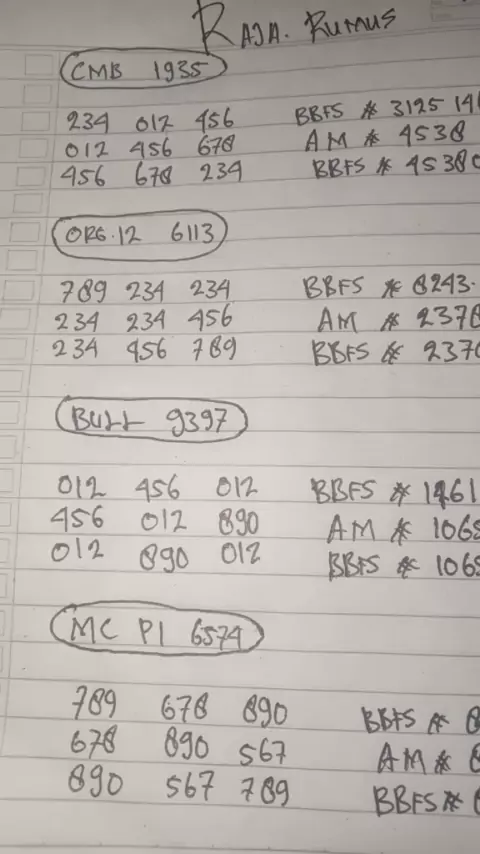 RAJA. RUMUS
CMB 1935
234 012 456 BBFS * 3125 14
012 456 678 AM * 4538
456 678 234 BBFS * 4538
ORG.12 6113
789 234 234 BBFS * 8243.
234 234 456 AM * 2378
234 456 789 BBFS * 237
BULL 9397
012 456 012 BBFS * 1461
456 012 890 AM * 1068
012 890 012 BBFS * 1068
MC PI 6574
789 678 890 BBFS *
678 890 567 AM *
890 567 789 BBFS *